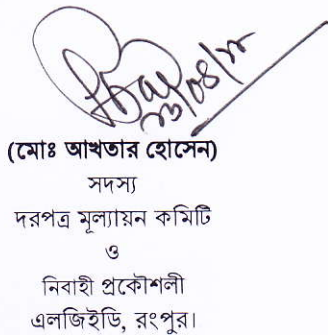 (মোঃ আখতার হোসেন)
সদস্য
দরপত্র মূল্যায়ন কমিটি
ও
নিবাহী প্রকৌশলী
এলজিইডি, রংপুর।